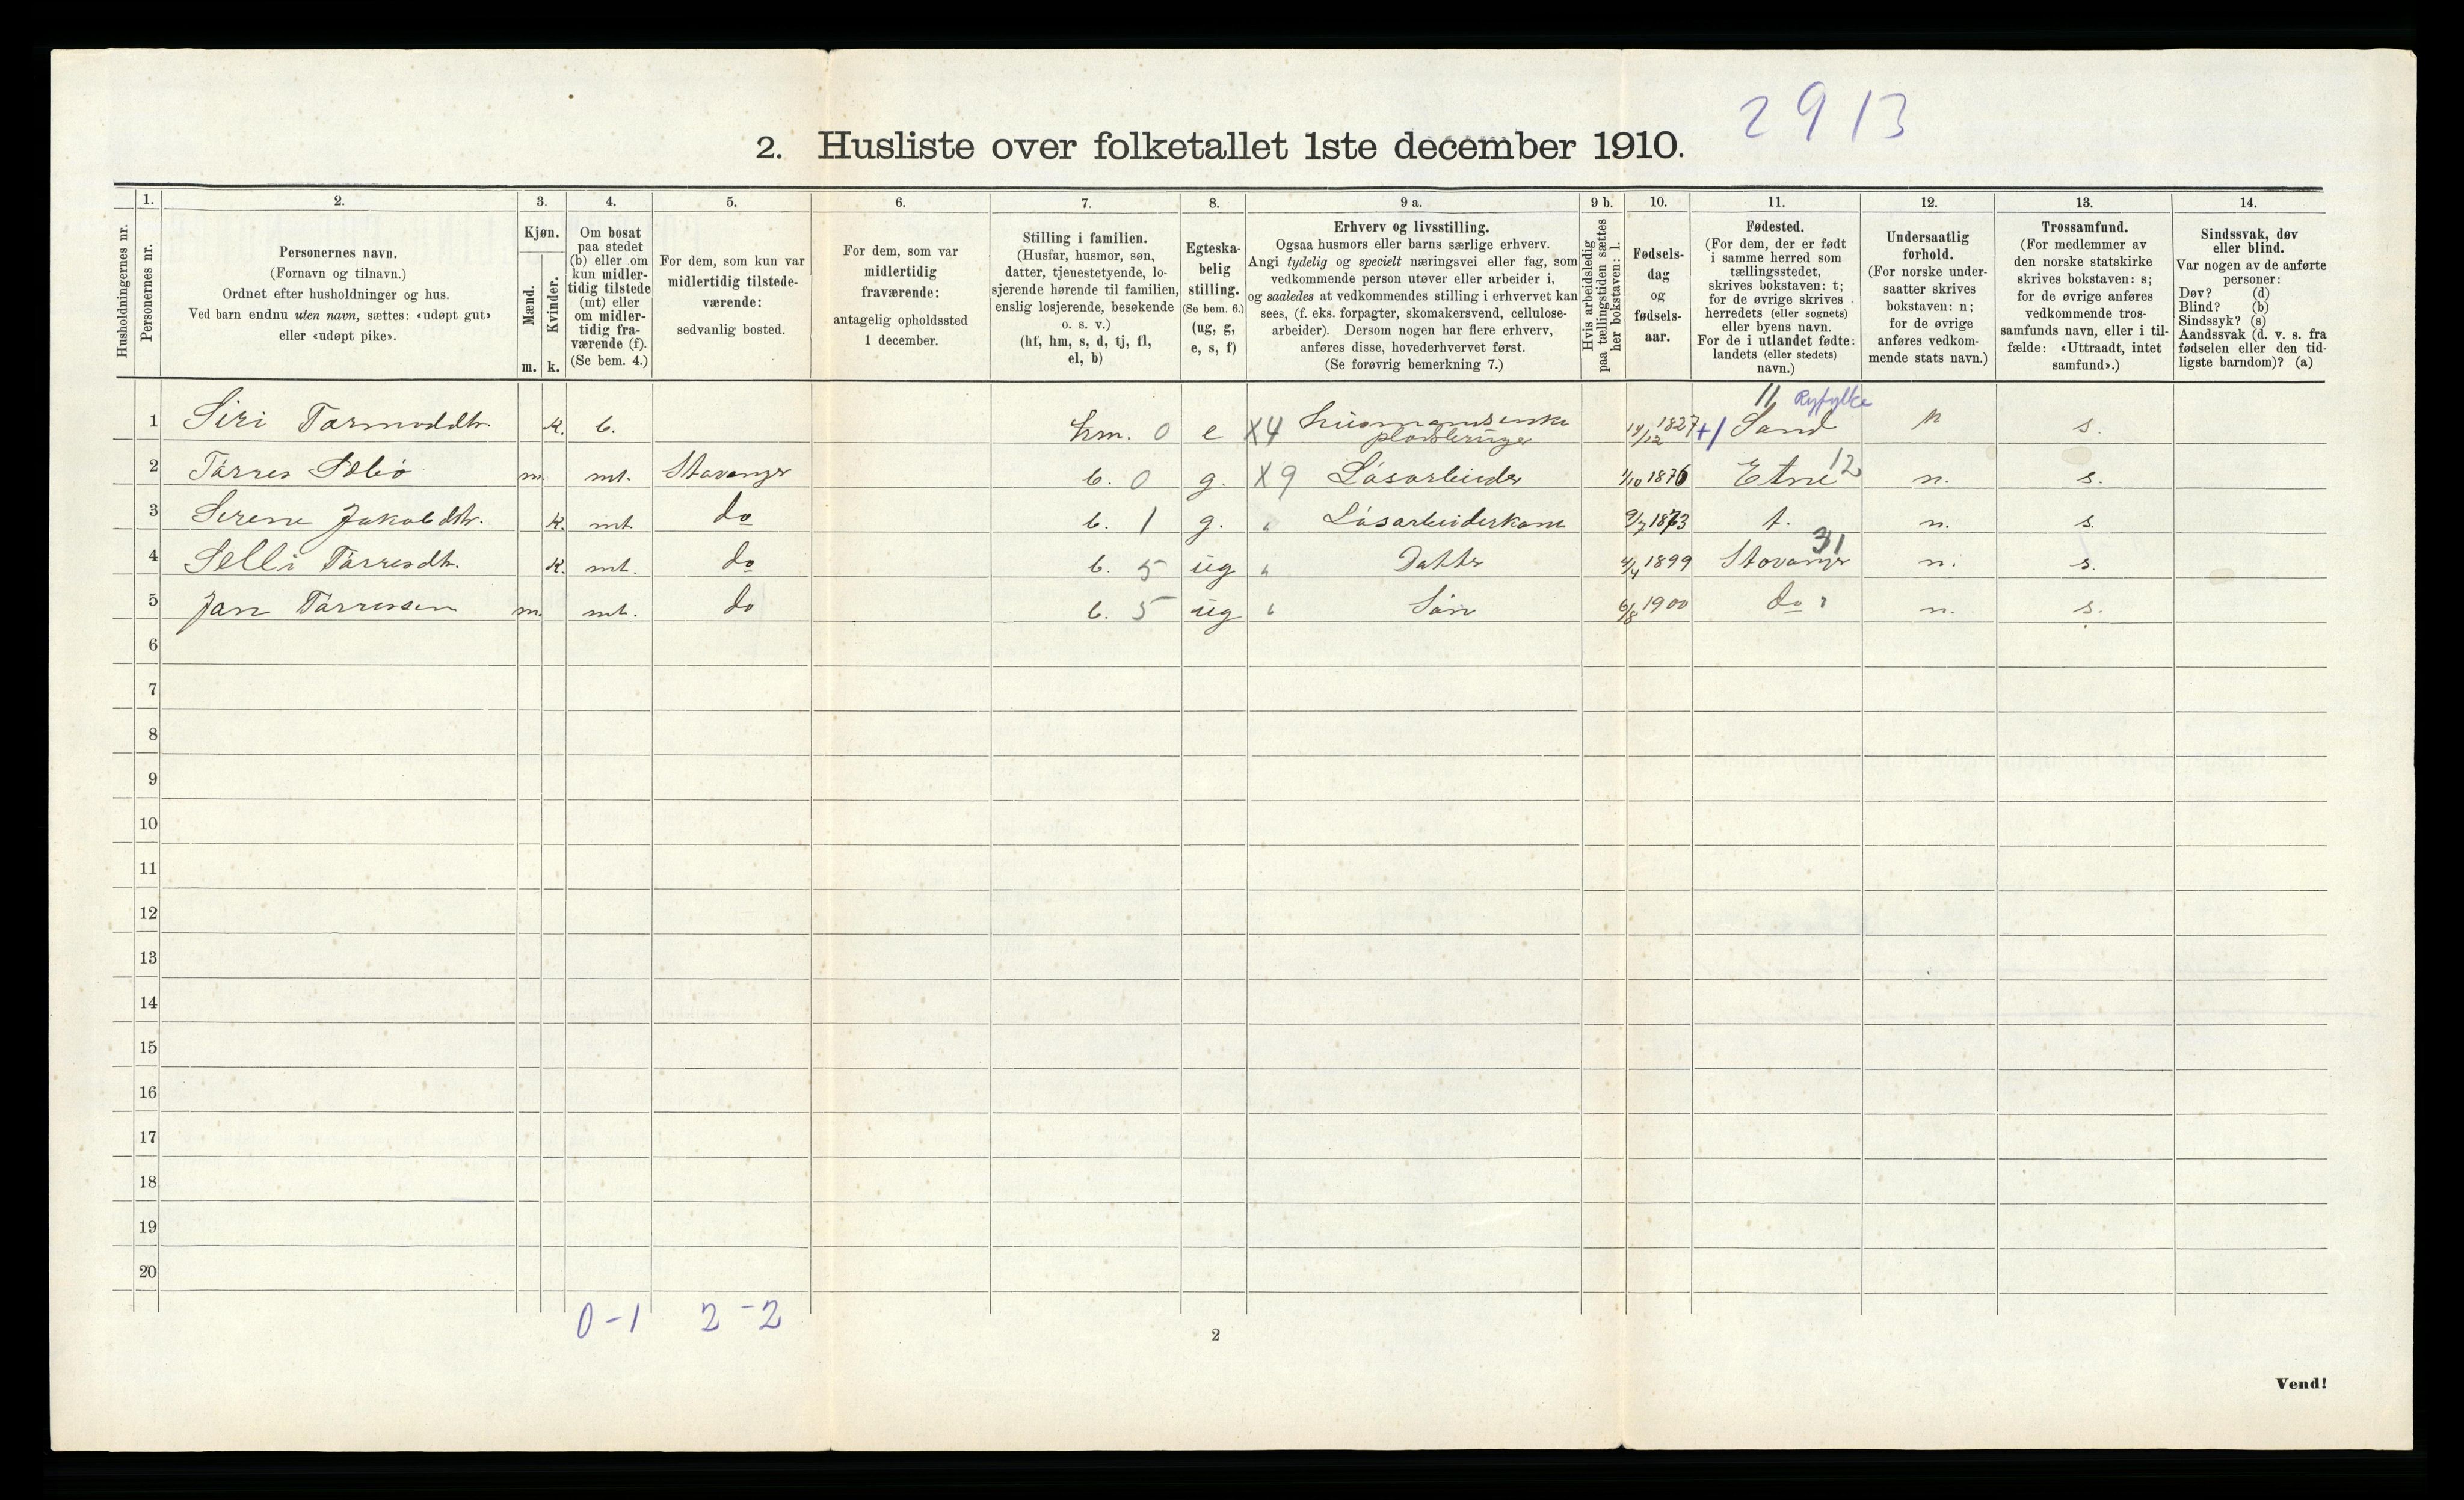 2913
2. Husliste over folketallet 1ste december 1910.
Husholdningernes nr.
1.
Personernes nr.
2.
Personernes navn.
(Fornavn og tilnavn.)
Ordnet efter husholdninger og hus.
Ved barn endnu uten navn, sættes: «udøpt gut»
eller «udøpt pike».
3.
Kjøn.
Mænd.
Kvinder.
m. k.
4.
Om bosat
paa stedet
(b) eller om
kun midler-
tidig tilstede
(mt) eller
om midler-
tidig fra-
værende (f).
(Se bem. 4.)
5.
For dem, som kun var
midlertidig tilstede-
værende:
sedvanlig bosted.
6.
For dem, som var
midlertidig
fraværende:
antagelig opholdssted
1 december.
7.
Stilling i familien.
(Husfar, husmor, søn,
datter, tjenestetyende, lo-
sjerende hørende til familien,
enslig losjerende, besøkende
o. s. v.)
(hf, hm, s, d, tj, fl,
el, b)
8.
Egteska-
belig
stilling.
(Se bem. 6.)
(ug, g,
e, s, f)
9 a.
Erhverv og livsstilling.
Ogsaa husmors eller barns særlige erhverv.
Angi tydelig og specielt næringsvei eller fag, som
vedkommende person utøver eller arbeider i,
og saaledes at vedkommendes stilling i erhvervet kan
sees, (f. eks. forpagter, skomakersvend, cellulose-
arbeider). Dersom nogen har flere erhverv,
anføres disse, hovederhvervet først.
(Se forøvrig bemerkning 7.)
9 b.
Hvis arbeidsledig
paa tællingstiden sættes
her bokstaven: l.
10.
Fødsels-
dag
og
fødsels-
aar.
11.
Fødested.
(For dem, der er født
i samme herred som
tællingsstedet,
skrives bokstaven: t;
for de øvrige skrives
herredets (eller sognets)
eller byens navn.
For de i utlandet fødte:
landets (eller stedets)
navn.)
12.
Undersaatlig
forhold.
(For norske under-
saatter skrives
bokstaven: n;
for de øvrige
anføres vedkom-
mende stats navn.)
13.
Trossamfund.
(For medlemmer av
den norske statskirke
skrives bokstaven: s;
for de øvrige anføres
vedkommende tros-
samfunds navn, eller i til-
fælde: «Uttraadt, intet
samfund».)
14.
Sindssvak, døv
eller blind.
Var nogen av de anførte
personer:
Døv? (d)
Blind? (b)
Sindssyk? (s)
Aandssvak (d. v. s. fra
fødselen eller den tid-
ligste barndom)? (a)
11 Ryfylke
1 Siri Tormoddtr. k. b. hm. 0 e X4 Husmandsenke 14/12 1827 +1 Sand n s.
2 Tørres m. mt. Stavanger b. 0 g. X9 Løsarbeider 1/10 1876 Etne 12 n. s.
3 Serene Jakobdtr. k. mt. do b. 1 g. " Løsarbeiderkone 9/7 1873 t. n. s.
31
4 Selli Tørresdtr. k. mt. do b. 5 ug " Datter 4/4 1899 Stavanger n. s.
5 Jan Tørressen m. mt. do b. 5 ug " Søn 6/8 1900 do n. s.
6
7
8
9
10
11
12
13
14
15
16
17
18
19
20
0-1 2-2
2
Vend!